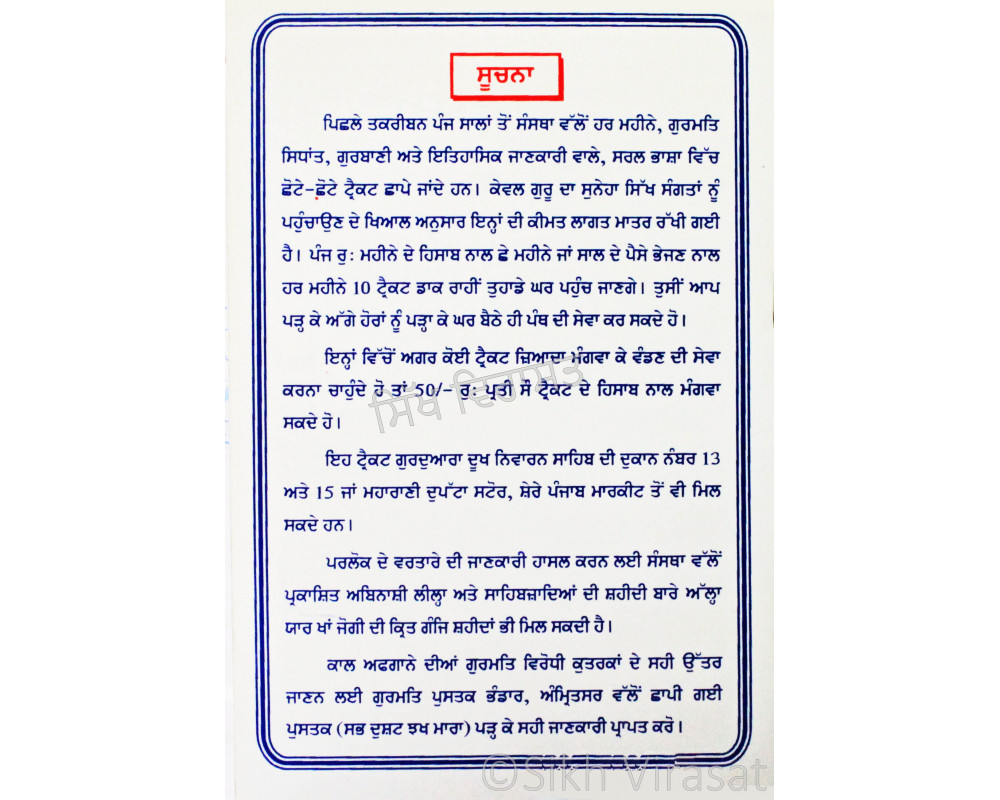 ਸੂਚਨਾ
ਪਿਛਲੇ ਤਕਰੀਬਨ ਪੰਜ ਸਾਲਾਂ ਤੋਂ ਸੰਸਥਾ ਵੱਲੋਂ ਹਰ ਮਹੀਨੇ, ਗੁਰਮਤਿ
ਸਿਧਾਂਤ, ਗੁਰਬਾਣੀ ਅਤੇ ਇਤਿਹਾਸਿਕ ਜਾਣਕਾਰੀ ਵਾਲੇ, ਸਰਲ ਭਾਸ਼ਾ ਵਿੱਚ
ਛੋਟੇ-ਛੋਟੇ ਟ੍ਰੈਕਟ ਛਾਪੇ ਜਾਂਦੇ ਹਨ। ਕੇਵਲ ਗੁਰੂ ਦਾ ਸੁਨੇਹਾ ਸਿੱਖ ਸੰਗਤਾਂ ਨੂੰ
ਪਹੁੰਚਾਉਣ ਦੇ ਖਿਆਲ ਅਨੁਸਾਰ ਇਨ੍ਹਾਂ ਦੀ ਕੀਮਤ ਲਾਗਤ ਮਾਤਰ ਰੱਖੀ ਗਈ
ਹੈ। ਪੰਜ ਰੁ: ਮਹੀਨੇ ਦੇ ਹਿਸਾਬ ਨਾਲ ਛੇ ਮਹੀਨੇ ਜਾਂ ਸਾਲ ਦੇ ਪੈਸੇ ਭੇਜਣ ਨਾਲ
ਹਰ ਮਹੀਨੇ 10 ਟ੍ਰੈਕਟ ਡਾਕ ਰਾਹੀਂ ਤੁਹਾਡੇ ਘਰ ਪਹੁੰਚ ਜਾਣਗੇ। ਤੁਸੀਂ ਆਪ
ਪੜ੍ਹ ਕੇ ਅੱਗੇ ਹੋਰਾਂ ਨੂੰ ਪੜ੍ਹਾ ਕੇ ਘਰ ਬੈਠੇ ਹੀ ਪੰਥ ਦੀ ਸੇਵਾ ਕਰ ਸਕਦੇ ਹੋ।
ਇਨ੍ਹਾਂ ਵਿੱਚੋਂ ਅਗਰ ਕੋਈ ਟ੍ਰੈਕਟ ਜ਼ਿਆਦਾ ਮੰਗਵਾ ਕੇ ਵੰਡਣ ਦੀ ਸੇਵਾ
ਕਰਨਾ ਚਾਹੁੰਦੇ ਹੋ ਤਾਂ 50/- ਰੁ: ਪ੍ਰਤੀ ਸੌ ਟ੍ਰੈਕਟ ਦੇ ਹਿਸਾਬ ਨਾਲ ਮੰਗਵਾ
ਸਕਦੇ ਹੋ।
ਸਿੱਖ ਵਿਰਾਸਤ
ਇਹ ਟ੍ਰੈਕਟ ਗੁਰਦੁਆਰਾ ਦੂਖ ਨਿਵਾਰਨ ਸਾਹਿਬ ਦੀ ਦੁਕਾਨ ਨੰਬਰ 13
ਅਤੇ 15 ਜਾਂ ਮਹਾਰਾਣੀ ਦੁਪੱਟਾ ਸਟੋਰ, ਸ਼ੇਰੇ ਪੰਜਾਬ ਮਾਰਕੀਟ ਤੋਂ ਵੀ ਮਿਲ
ਸਕਦੇ ਹਨ।
ਪਰਲੋਕ ਦੇ ਵਰਤਾਰੇ ਦੀ ਜਾਣਕਾਰੀ ਹਾਸਲ ਕਰਨ ਲਈ ਸੰਸਥਾ ਵੱਲੋਂ
ਪ੍ਰਕਾਸ਼ਿਤ ਅਬਿਨਾਸ਼ੀ ਲੀਲ੍ਹਾ ਅਤੇ ਸਾਹਿਬਜ਼ਾਦਿਆਂ ਦੀ ਸ਼ਹੀਦੀ ਬਾਰੇ ਅੱਲ੍ਹਾ
ਯਾਰ ਖਾਂ ਜੋਗੀ ਦੀ ਕ੍ਰਿਤ ਗੰਜਿ ਸ਼ਹੀਦਾਂ ਭੀ ਮਿਲ ਸਕਦੀ ਹੈ।
ਕਾਲ ਅਫਗਾਨੇ ਦੀਆਂ ਗੁਰਮਤਿ ਵਿਰੋਧੀ ਕੁਤਰਕਾਂ ਦੇ ਸਹੀ ਉੱਤਰ
ਜਾਣਨ ਲਈ ਗੁਰਮਤਿ ਪੁਸਤਕ ਭੰਡਾਰ, ਅੰਮ੍ਰਿਤਸਰ ਵੱਲੋਂ ਛਾਪੀ ਗਈ
ਪੁਸਤਕ (ਸਭ ਦੁਸ਼ਟ ਝਖ ਮਾਰਾ) ਪੜ੍ਹ ਕੇ ਸਹੀ ਜਾਣਕਾਰੀ ਪ੍ਰਾਪਤ ਕਰੋ।
©Sikh Virasat